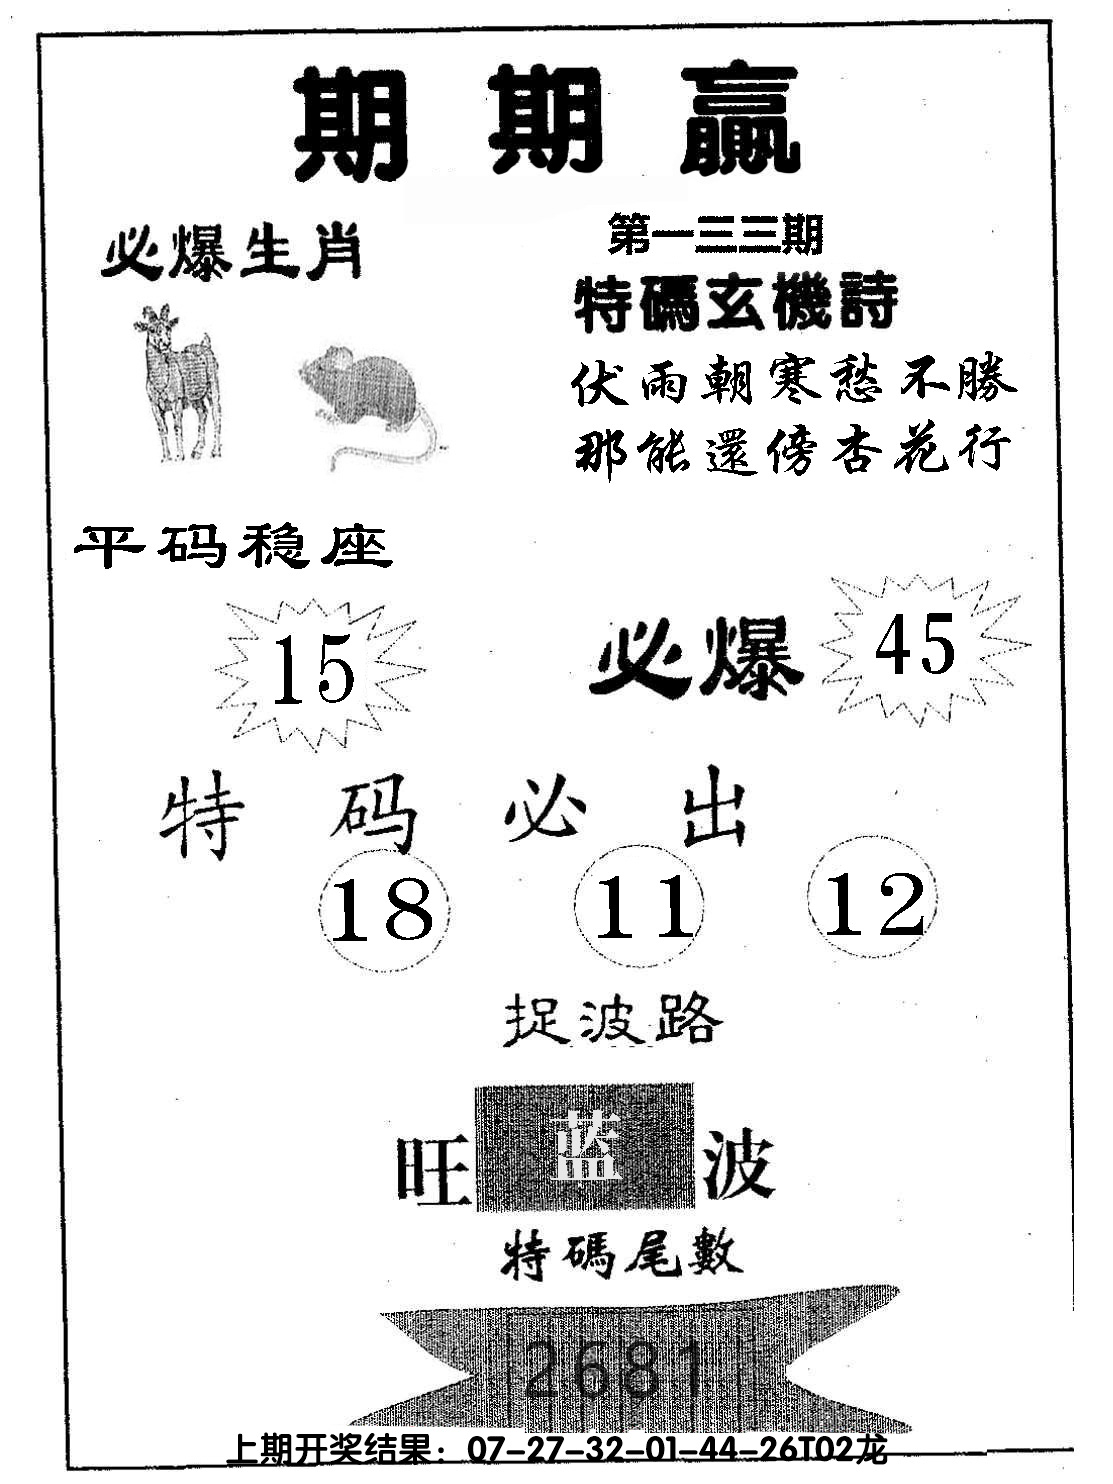 期期赢
必爆生肖
第一三三期
特碼玄機詩
伏雨朝寒愁不勝
那能還傍杏花行
平码稳座
15
必爆
45
特码必出
18 11 12
捉波路
旺蓝波
特碼尾數
2681
上期开奖结果：07-27-32-01-44-26T02龙